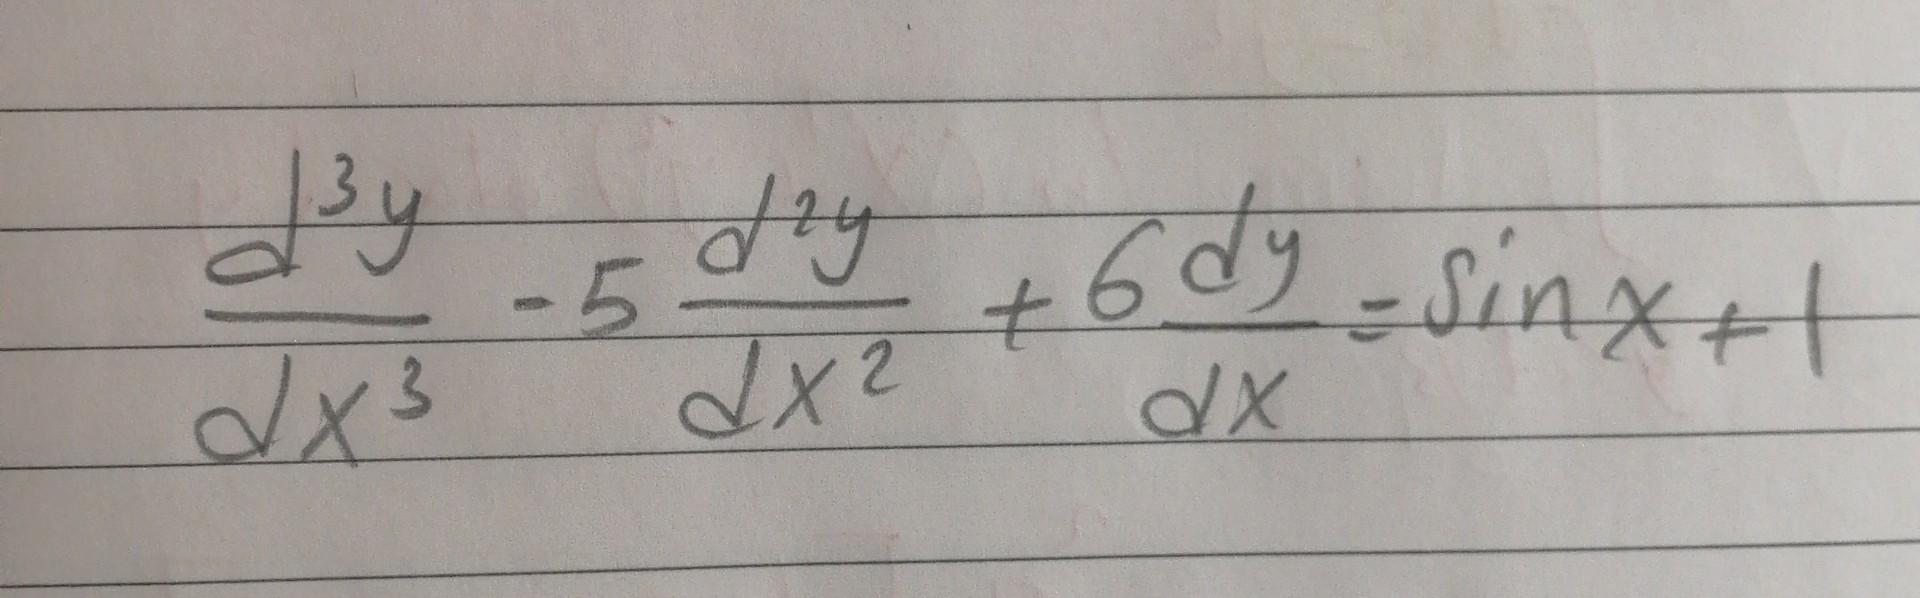 d³y/dx³ - 5 d²y/dx² + 6 dy/dx = sin x + 1